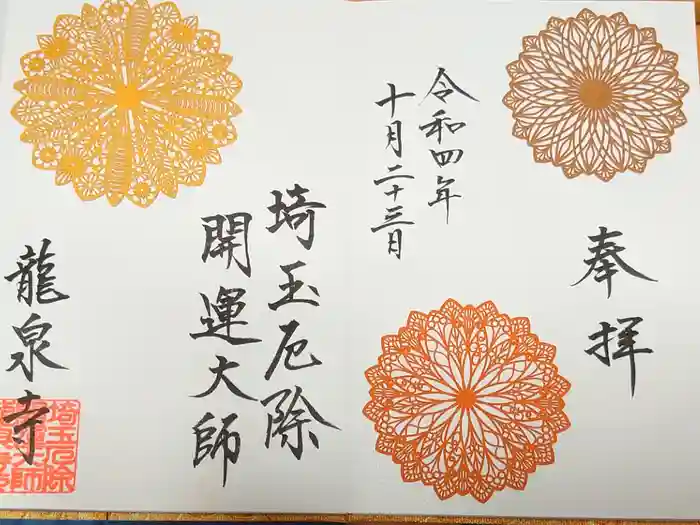 奉拝
令和四年
十月二十三日
埼玉厄除
開運大師
龍泉寺
埼玉厄除